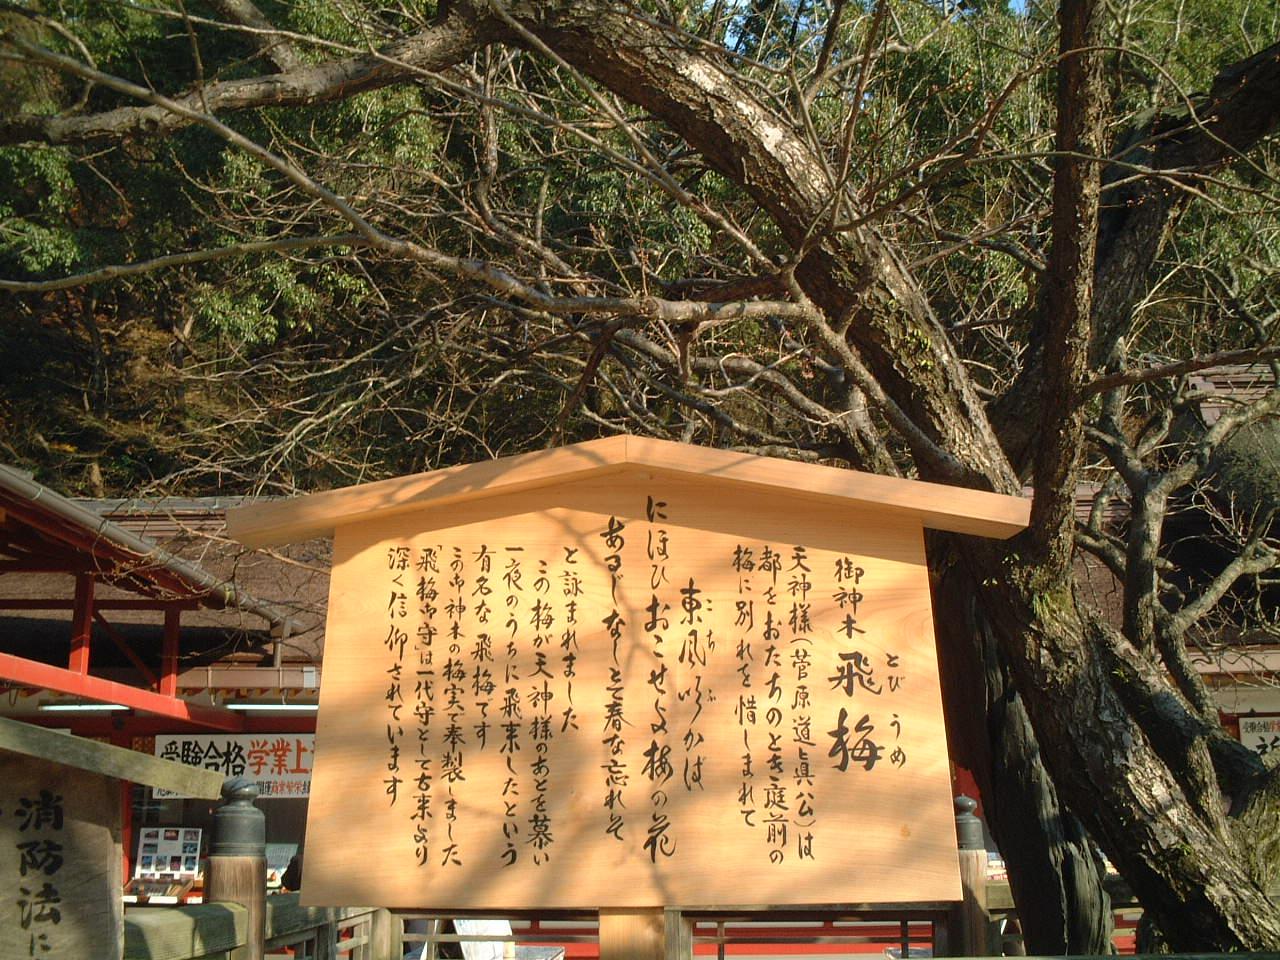 御神木 飛梅
とび うめ
天神様(菅原道眞公)は
都をおたちのとき庭前の
梅に別れを惜しまれて
東風ふかば
こち ぶ
にほひおこせよ梅の花
あるじなしとて春な忘れそ
と詠まれました
この梅が天神様のあとを慕い
一夜のうちに飛来したという
有名な飛梅です
この御神木の梅実で奉製しました
「飛梅御守」は一代守として古来より
深く信仰されています
受験合格 学業上
消防法に